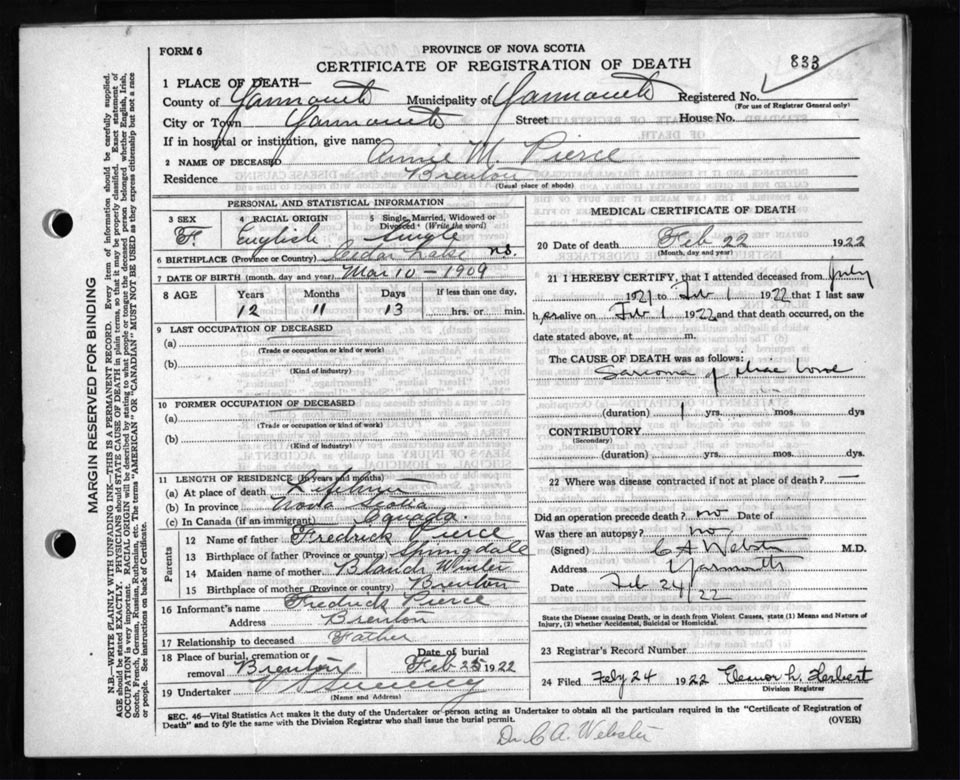 FORM 6
PROVINCE OF NOVA SCOTIA
CERTIFICATE OF REGISTRATION OF DEATH
833
1 PLACE OF DEATH—
County of Yarmouth Municipality of Yarmouth Registered No.
(For use of Registrar General only)
City or Town Yarmouth Street House No.
If in hospital or institution, give name
2 NAME OF DECEASED Annie M. Pierce
Residence Brenton
(Usual place of abode)
PERSONAL AND STATISTICAL INFORMATION
3 SEX F.
4 RACIAL ORIGIN English
5 Single, Married, Widowed or Divorced (Write the word) single
6 BIRTHPLACE (Province or Country) Cedar Lake N.S.
7 DATE OF BIRTH (month, day and year) Mar 10 – 1909
8 AGE Years Months Days If less than one day,
12 11 13 hrs. or min.
9 LAST OCCUPATION OF DECEASED
(a)
(Trade or occupation or kind or work)
(b)
(Kind of industry)
10 FORMER OCCUPATION OF DECEASED
(a)
(Trade or occupation or kind of work)
(b)
(Kind of industry)
11 LENGTH OF RESIDENCE (In years and months)
(a) At place of death Lifetime
(b) In province Nova Scotia
(c) In Canada (if an immigrant) Canada.
Parents
12 Name of father Fredrick Pierce
13 Birthplace of father (Province or country) Springdale
14 Maiden name of mother Winter
15 Birthplace of mother (Province or country) Brenton
16 Informant's name Fredrick Pierce
Address Brenton
17 Relationship to deceased Father
18 Place of burial, cremation or removal Brenton Date of burial Feb 25 1922
19 Undertaker Sweeney
(Name and Address)
MEDICAL CERTIFICATE OF DEATH
20 Date of death Feb 22 1922
(Month, day and year)
21 I HEREBY CERTIFY, that I attended deceased from July
1921 to Feb 1 1922 that I last saw
her alive on Feb 1 1922 and that death occurred, on the
date stated above, at m.
The CAUSE OF DEATH was as follows:
Sarcoma of
(duration) 1 yrs. mos. dys
CONTRIBUTORY
(Secondary)
(duration) yrs. mos. dys.
22 Where was disease contracted if not at place of death? —
Did an operation precede death? no Date of
Was there an autopsy? no
(Signed) C A Webster M.D.
Address Yarmouth
Date Feb 24/22
State the Disease causing Death, or in death from Violent Causes, state (1) Means and Nature of
Injury, (2) whether Accidental, Suicidal or Homicidal.
23 Registrar's Record Number
24 Filed Feby 24 1922 Eleanor L. Herbert
Division Registrar
SEC. 46—Vital Statistics Act makes it the duty of the Undertaker or person acting as Undertaker to obtain all the particulars required in the "Certificate of Registration of
Death" and to fyle the same with the Division Registrar who shall issue the burial permit. (OVER)
Dr. C. A. Webster
MARGIN RESERVED FOR BINDING
N.B—WRITE PLAINLY WITH UNFADING INK—THIS IS A PERMANENT RECORD. Every item of information should be carefully supplied.
AGE should be stated EXACTLY. PHYSICIANS should STATE CAUSE OF DEATH in plain terms, so that it may be properly classified. Exact statement of
OCCUPATION is very important. RACIAL ORIGIN will be described by stating to what people or tongue the deceased person belonged whether English, Irish,
Scotch, French, German, Russian, Ruthenian, etc. The terms "AMERICAN" OR "CANADIAN" MUST NOT BE USED as they express citizenship but not a race
or people. See instructions on back of Certificate.